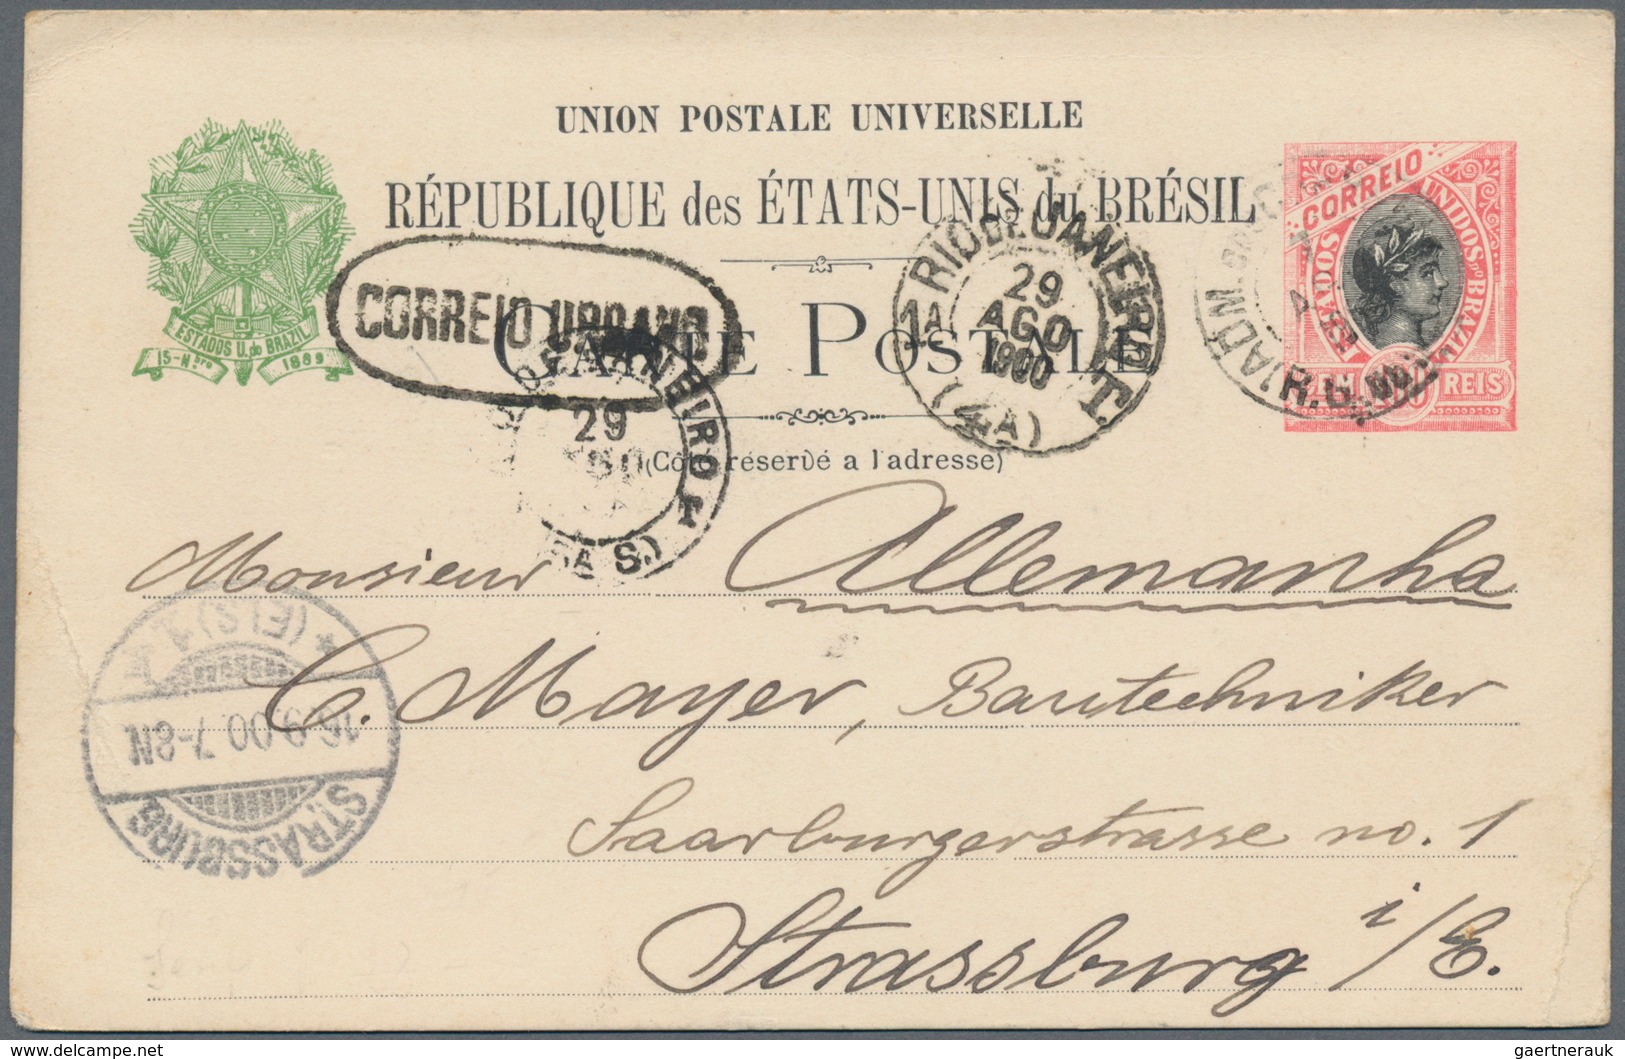 UNION POSTALE UNIVERSELLE
RÉPUBLIQUE des ÉTATS-UNIS du BRÉSIL
CARTE POSTALE
(Côté réservé a l'adresse)
ESTADOS U. do BRAZIL
15-Nbro 1889
CORREIO
ESTADOS UNIDOS do BRAZIL
100 REIS
CORREIO URBANO
RIO DE JANEIRO
1A
29
AGO
1900
T.
(4A)
29
T
S.)
R.G. No
Monsieur Allemanha
C. Mayer, Bautechniker
Saarburgerstrasse no. 1
Strassburg i/E.
STRASSBURG
16.9.00.7-8N.
* (ELS) 1
delcampe.net
gaertnerauk